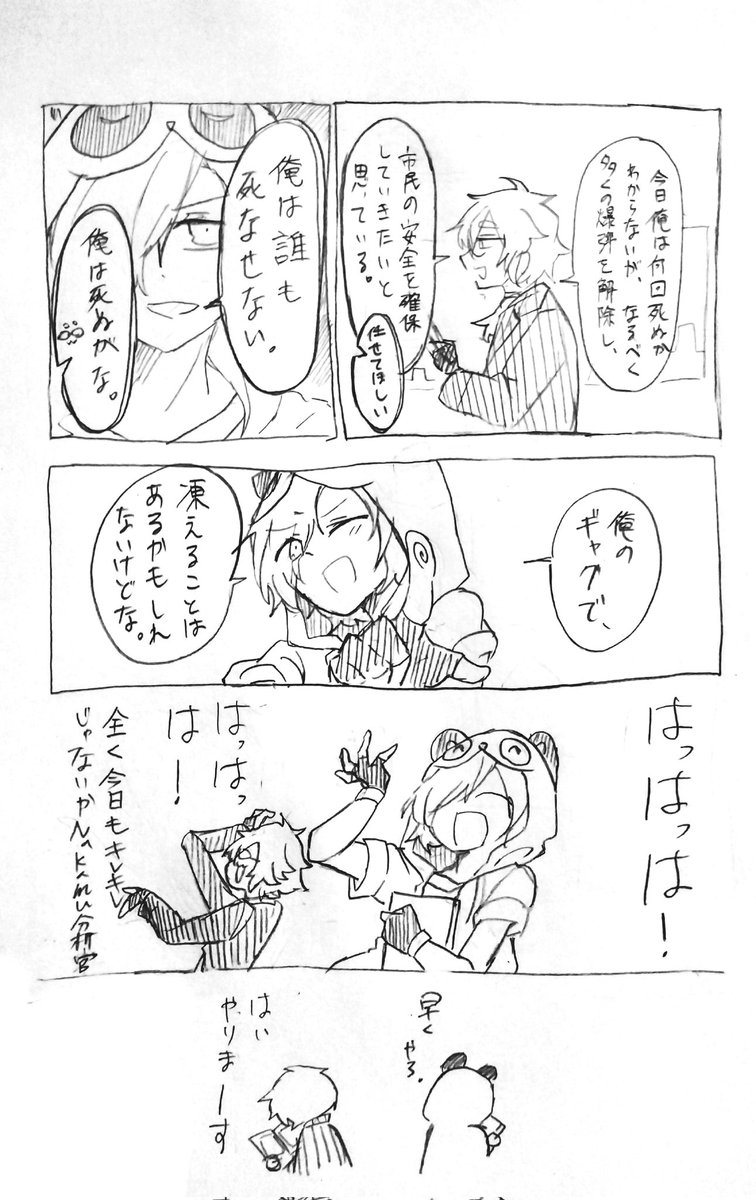 今日俺は何回死ぬか
わからないが、なるべく
多くの爆弾を解除し、
市民の安全を確保
していきたいと
思っている。
任せてほしい
俺は誰も
死なせない。
俺は死ぬがな。
俺の
ギャグで、
凍えることは
あるかもしれ
ないけどな。
はっはっは！
はっはっ
は！
全く今日もキレキレ
じゃないか
分析官
早く
やろ。
はい
やりまーす